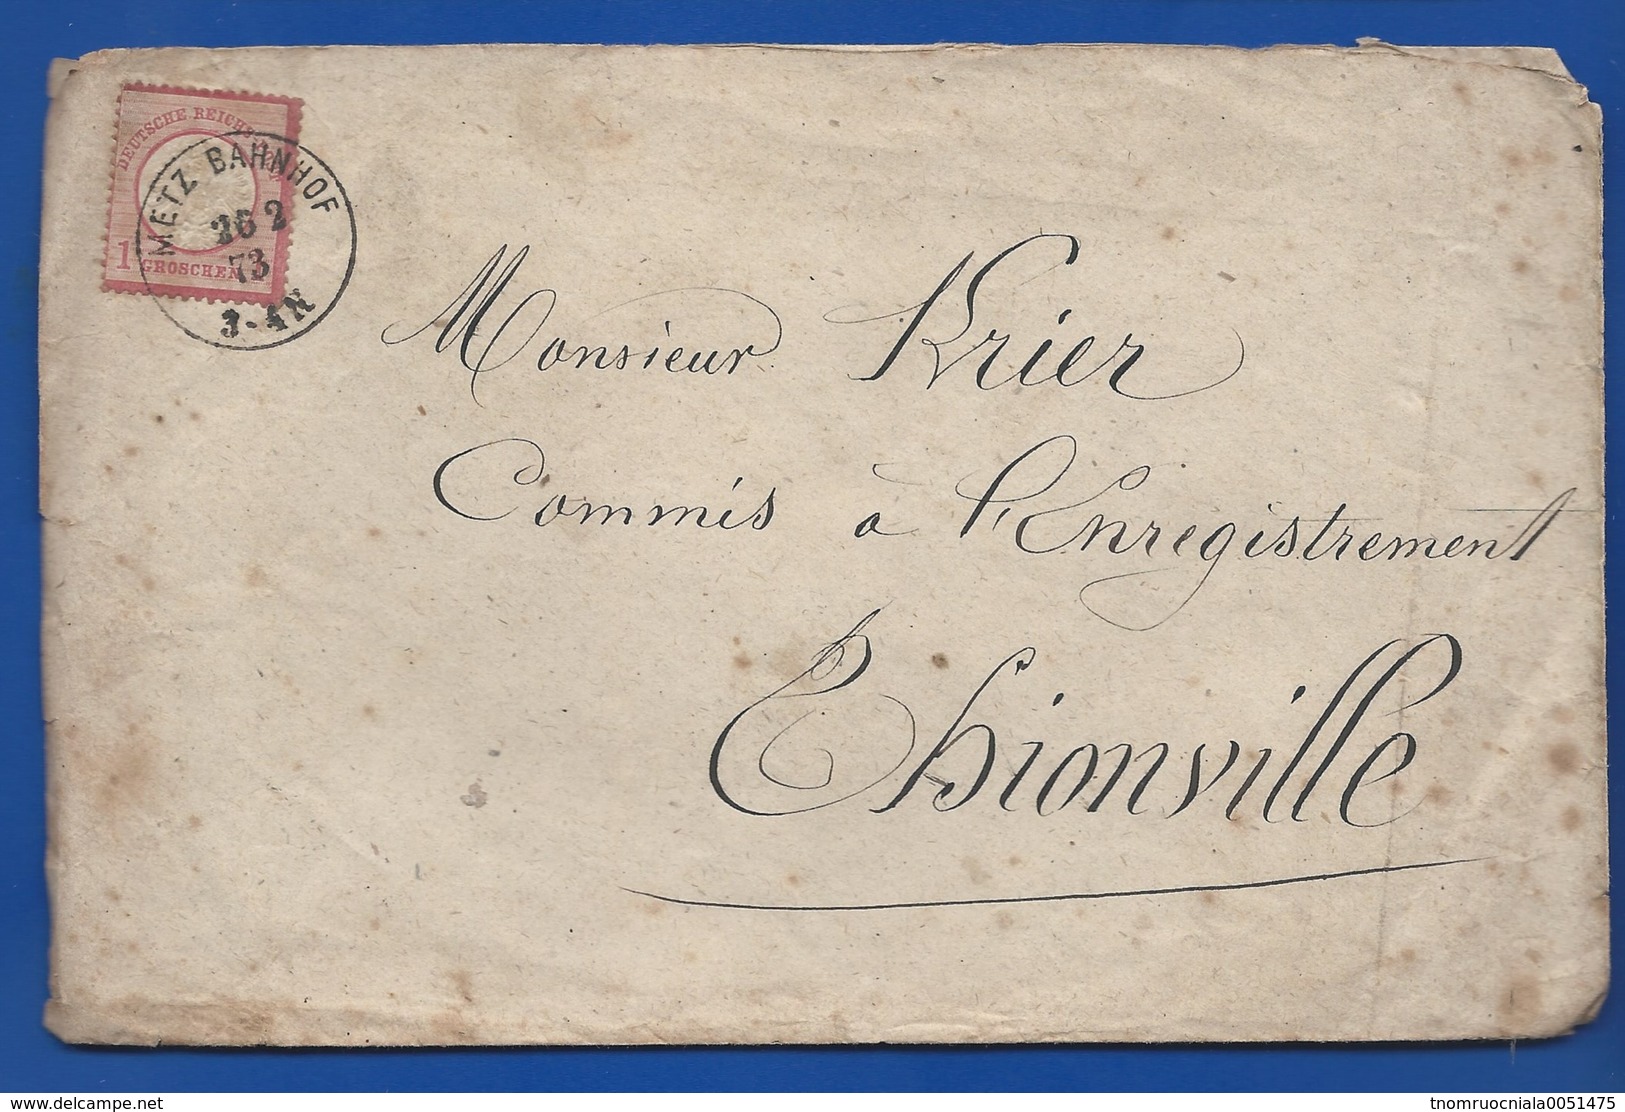 DEUTSCHE REICHS-POST
1 GROSCHEN
METZ BAHNHOF
26 2
73
3-4N
Monsieur Krier
Commis à l'Enregistrement
Thionville
www.delcampe.net
tnomruocniala0051475